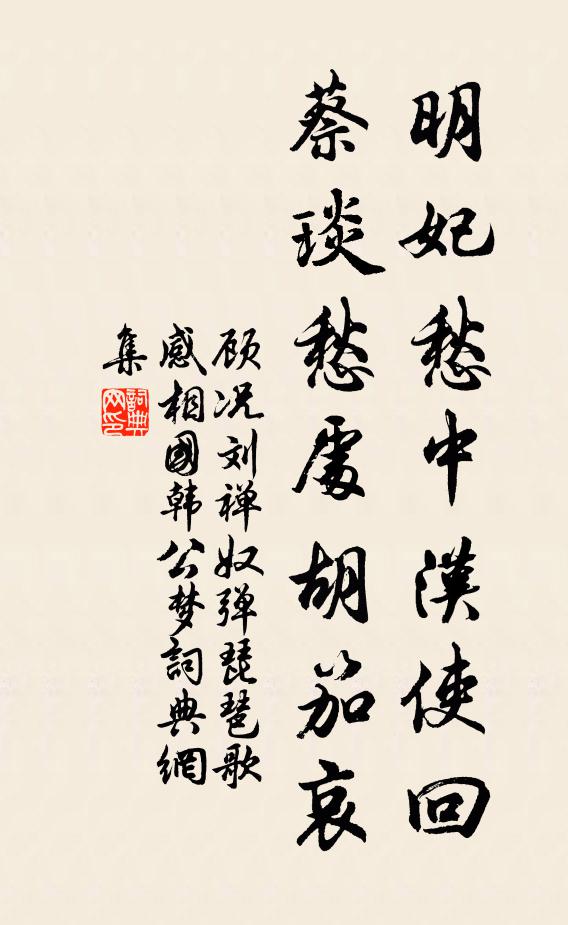 明妃愁中漢使回
蔡琰愁處胡笳哀
顾况刘禅奴弹琵琶歌
感相國韩公梦詞典網
集
詞典
网印